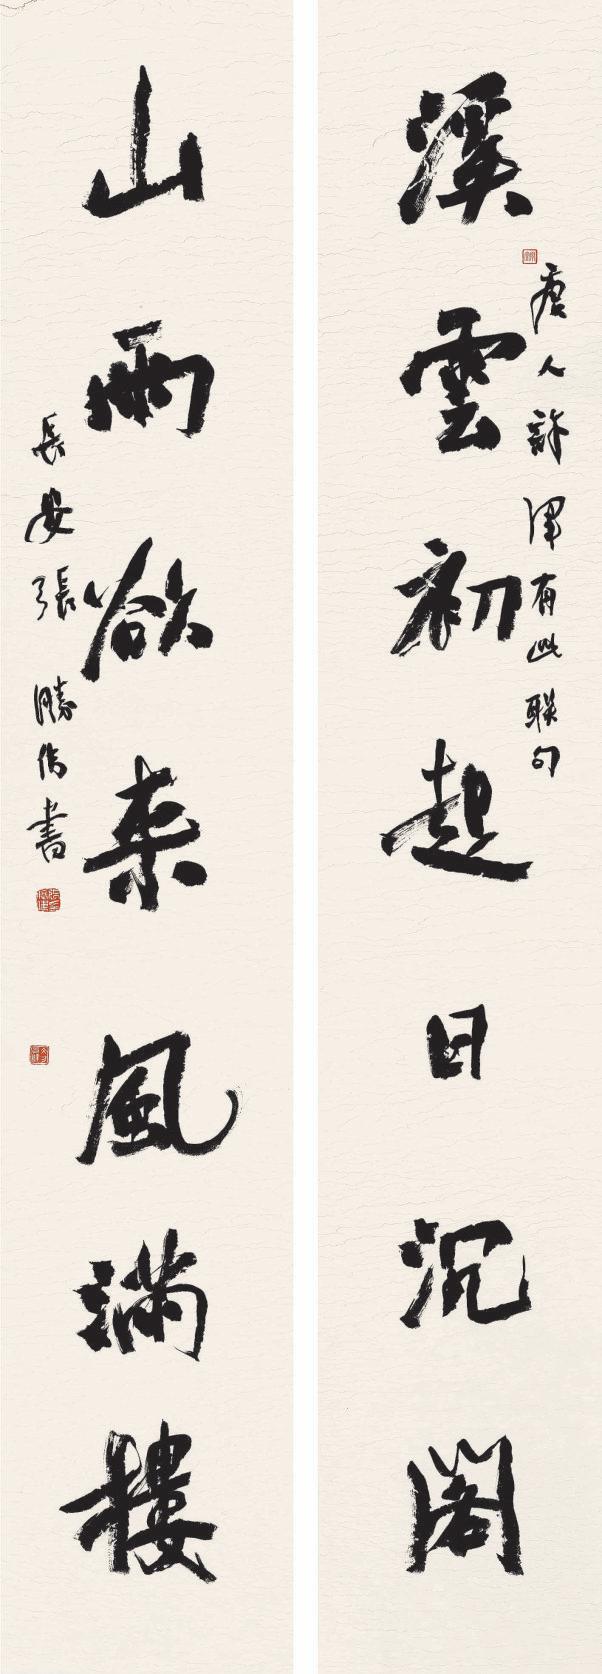 溪雲初起日沉阁
唐人許渾有此聯句
山雨欲来風滿樓
長安張勝偉書